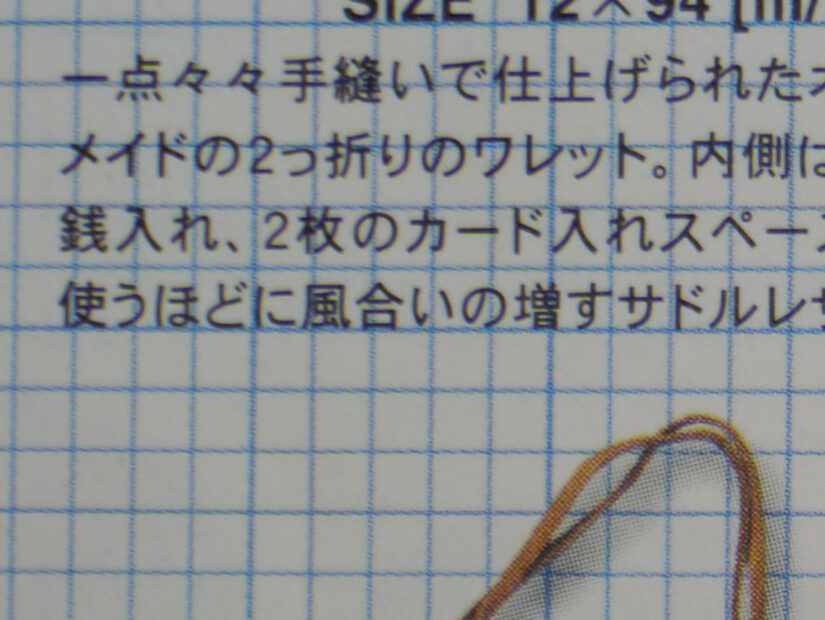 SIZE 12×94 [m/
一点々々手縫いで仕上げられた
メイドの2っ折りのワレット。内側は
銭入れ、2枚のカード入れスペー
使うほどに風合いの増すサドルレ